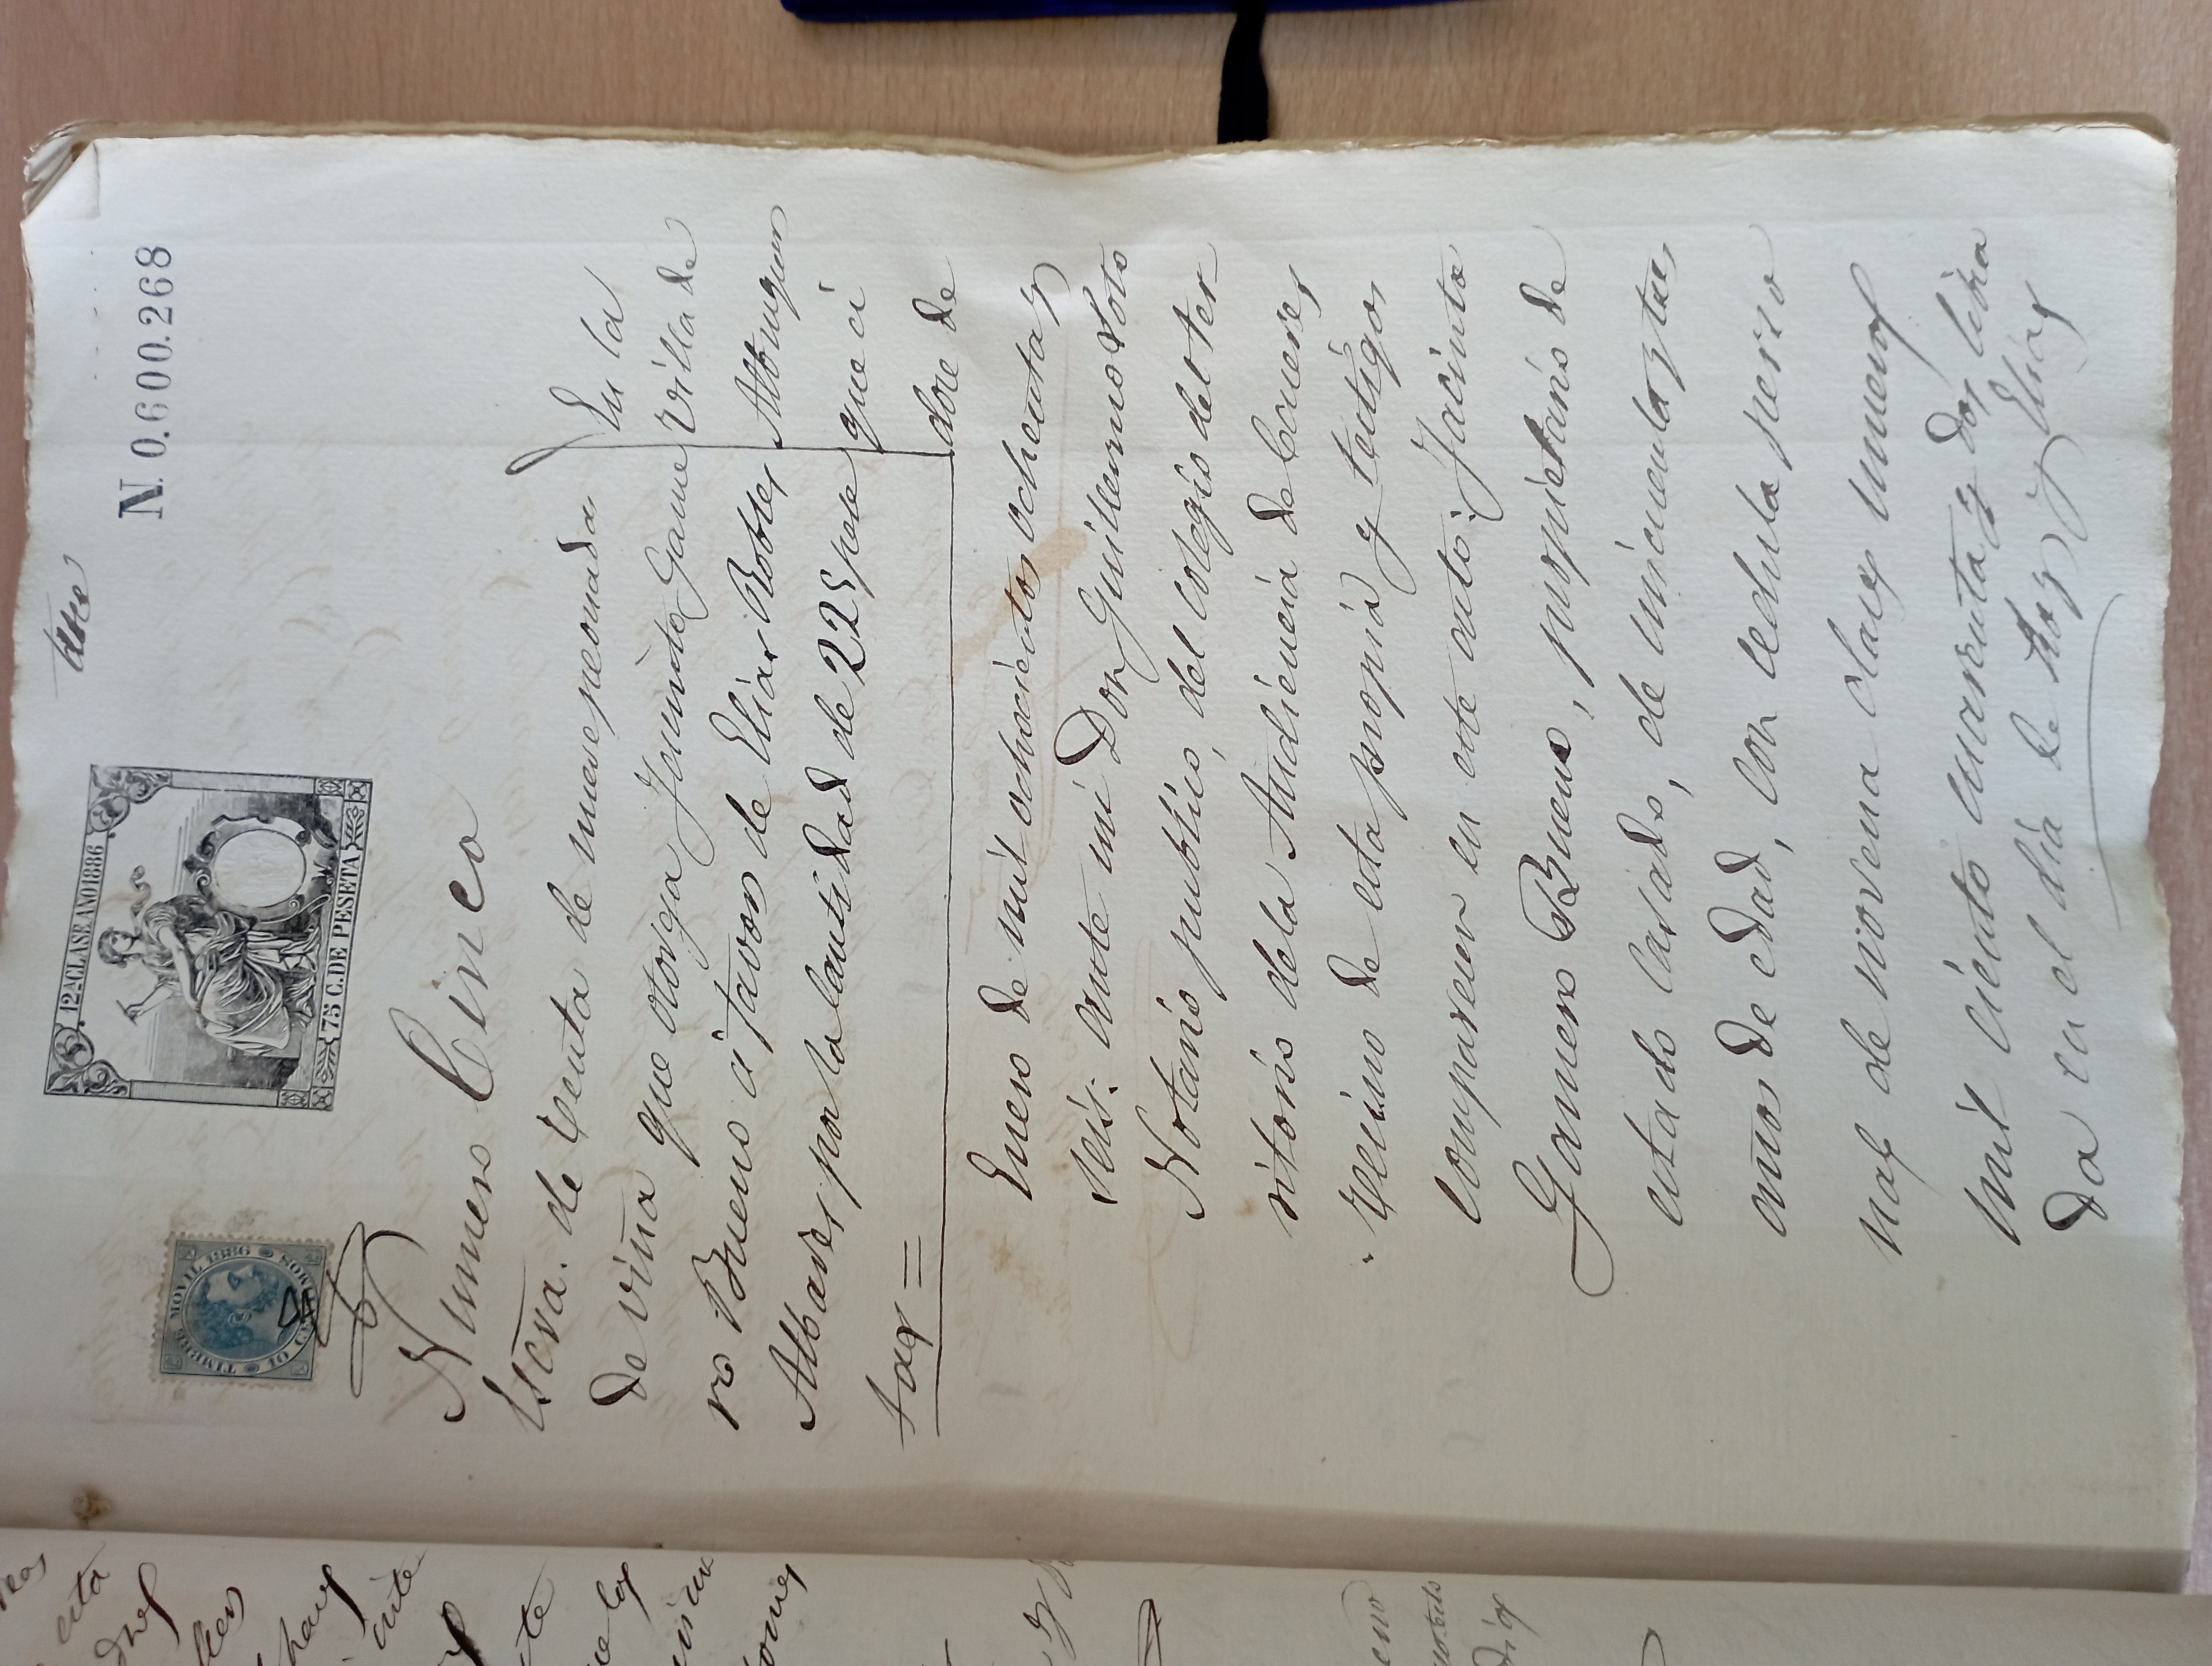 trece
12ª CLASE AÑO 1886
N. 0.600.268
TIMBRE MOVIL 1886
10 CENTIMOS
75 C. DE PESETA
Numero Cinco
Escra. de venta de nueve peonadas
de viña que otorga Jacinto Game
ro Bueno á favor de Elias Robles
Albares por la Cantidad de 225 pese
tas =
En la
Villa de
Alburquer
que á
doce de
Enero de mil ochocientos ochenta y
seis: ante mi Don Guillermo Soto
Notario publico, del colegio del ter-
ritorio dela Audiencia de Caceres
vecino de esta propia y testigos
comparecen en este acto: Jacinto
Gamero Bueno, propietario de
estado Casado, de cincuenta y tres
años de edad, con cedula perso
nal de novena clase numero
mil ciento cuarenta y dos libra
da en el dia de hoy y Elias